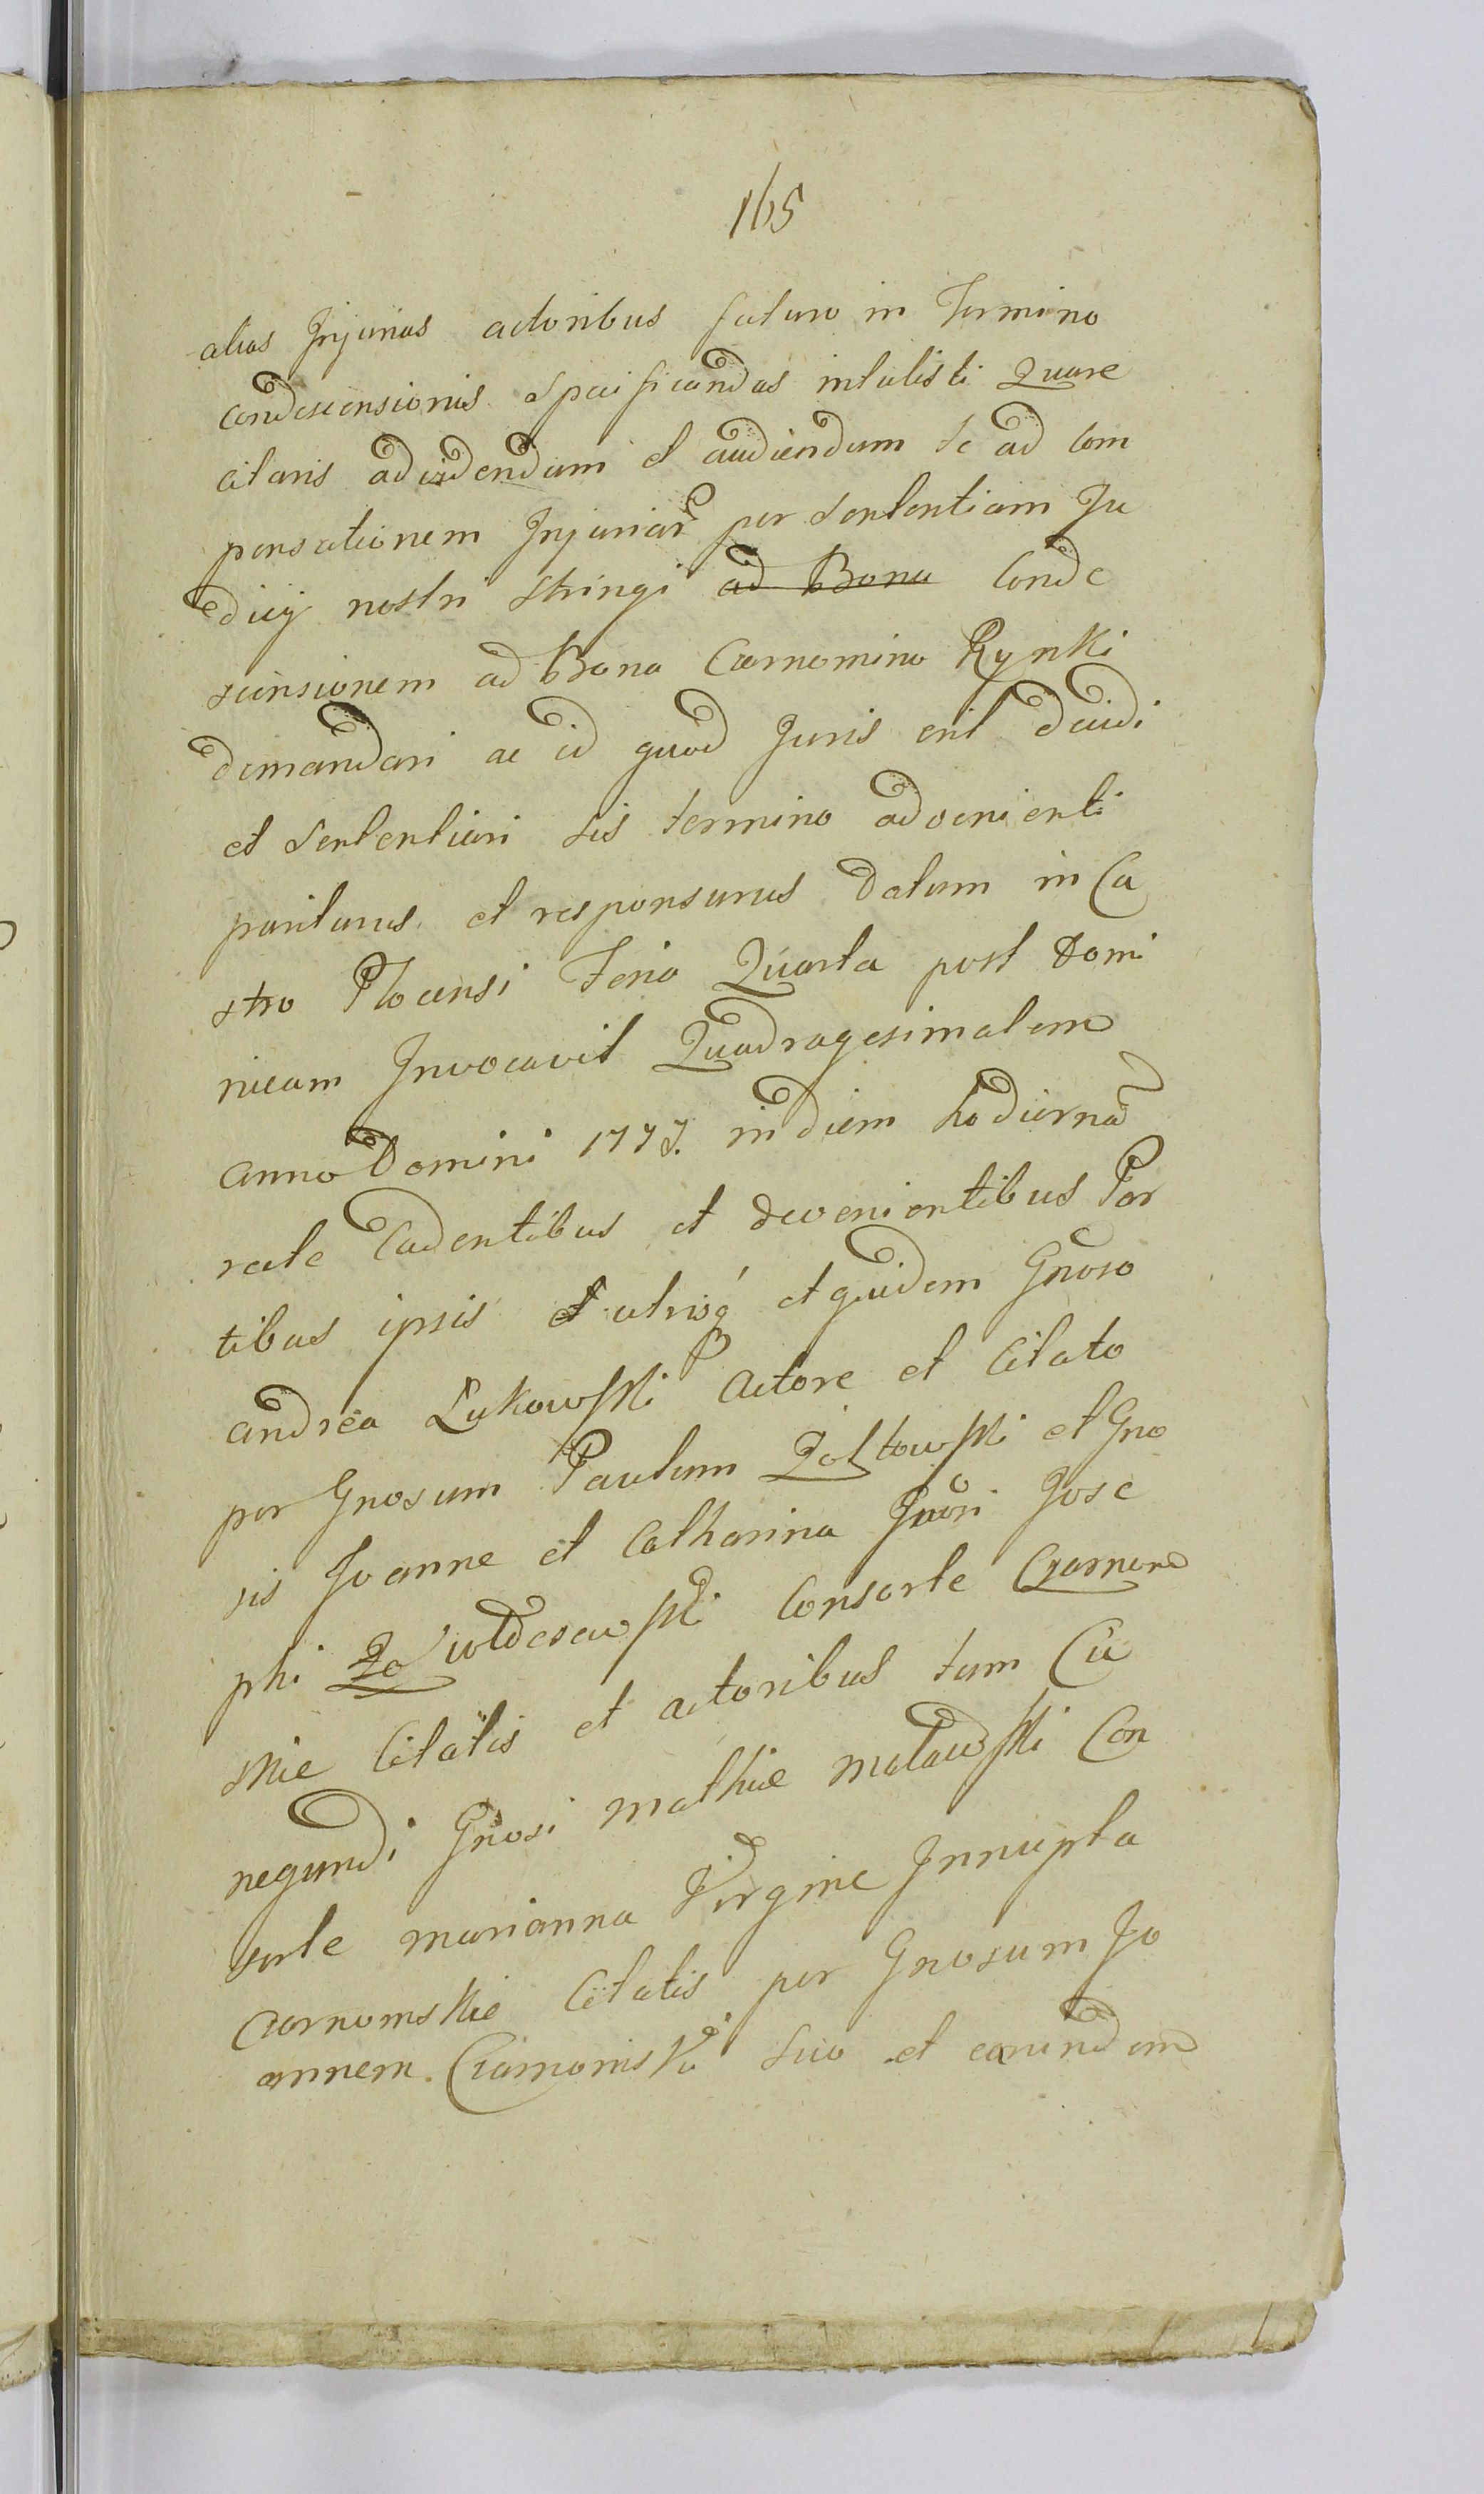 165
alias Injurias actoribus futuro in Termino
condescensionis Specificandas intulisti Quare
citaris ad videndum et audiendum te ad com
pensationem Injuriar͂ per Sententiam Ju
dicij nostri Stringi ad Bona Conde
scensionem ad Bona Czarnomino Rynki
demandari ac id quod Juris erit decidi
et Sententiari sis termino advenienti
pariturus et responsurus Datum in Ca
stro Plocensi Feria Quarta post Domi
nicam Invocavit Quadragesimalem
anno Domini 1777. in diem hodiernã
recte Cadentibus et devenientibus Par
tibus ipsis et utrisq́ et quidem Gñoso
andrea Lukowski actore et Citato
per Gnosum Paulum Zołtowski et Gno
sis Joanne et Catharina Gñosi Jose
phi
Consorte Czarnom
skie Citatis et actoribus tum Cu
negundi Gñosi mathiae Consorte
sorte marianna Virgine Innupta
Czarnomskie Citatis per Gnosum Jo
annem Czarnomski Suo et earundem